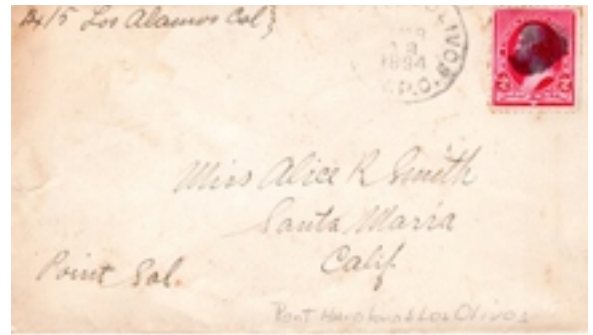 Bx 15 Los Alamos Cal}
MAR
1894
R.P.O.
2 2
Miss Alice R Smith
Santa Maria
Calif
Point Sal.
Port Harford & Los Olivos